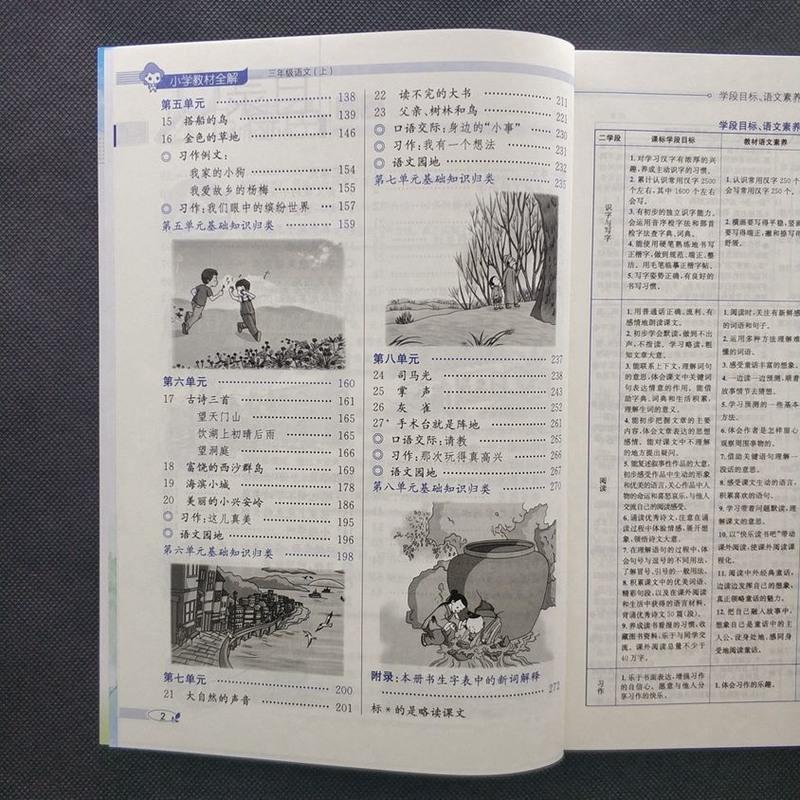 小学教材全解
三年级语文(上)
第五单元 138
15 搭船的鸟 139
16 金色的草地 146
◎ 习作例文:
我家的小狗 154
我爱故乡的杨梅 155
◎ 习作:我们眼中的缤纷世界 157
第五单元基础知识归类 159
第六单元 160
17 古诗三首 161
望天门山 165
饮湖上初晴后雨 165
望洞庭 166
18 富饶的西沙群岛 169
19 海滨小城 178
20 美丽的小兴安岭 186
◎ 习作:这儿真美 195
◎ 语文园地 196
第六单元基础知识归类 198
第七单元 200
21 大自然的声音 201
2
22 读不完的大书 211
23 父亲、树林和鸟 221
◎ 口语交际:身边的“小事” 230
◎ 习作:我有一个想法 231
◎ 语文园地 232
第七单元基础知识归类 235
第八单元 237
24 司马光 238
25 掌声 243
26 灰雀 252
27* 手术台就是阵地 261
◎ 口语交际:请教 265
◎ 习作:那次玩得真高兴 266
◎ 语文园地 267
第八单元基础知识归类 270
附录:本册书生字表中的新词解释 272
标*的是略读课文
学段目标、语文素养
学段目标、语文素养
二学段
课标学段目标
教材语文素养
识字与写字
1. 对学习汉字有浓厚的兴
趣,养成主动识字的习惯。
2. 累计认识常用汉字 2500
个左右,其中 1600 个左右
会写。
3. 有初步的独立识字能力。
会运用音序检字法和部首
检字法查字典、词典。
4. 能使用硬笔熟练地书写
正楷字,做到规范、端正、整
洁。用毛笔临摹正楷字帖。
5. 写字姿势正确,有良好的
书写习惯。
1. 认识常用汉字 250 个
会写常用汉字 250 个。
2. 横画要写得平稳,竖画
要写得端正,撇和捺写得
舒展。
阅读
1. 用普通话正确、流利、有
感情地朗读课文。
2. 初步学会默读,做到不出
声,不指读。学习略读,粗
知文章大意。
3. 能联系上下文,理解词句
的意思,体会课文中关键词
句表达情意的作用。能借
助字典、词典和生活积累,
理解生词的意义。
4. 能初步把握文章的主要
内容,体会文章表达的思想
感情。能对课文中不理解
的地方提出疑问。
5. 能复述叙事性作品的大意,
初步感受作品中生动的形象
和优美的语言,关心作品中人
物的命运和喜怒哀乐,与他人
交流自己的阅读感受。
6. 诵读优秀诗文,注意在诵
读过程中体验情感,展开想
象,领悟诗文大意。
7. 在理解语句的过程中,体
会句号与逗号的不同用法,
了解冒号、引号的一般用法。
8. 积累课文中的优美词语、
精彩句段,以及在课外阅读
和生活中获得的语言材料,
背诵优秀诗文 50 篇(段)。
9. 养成读书看报的习惯,收
藏图书资料,乐于与同学交
流。课外阅读总量不少于
40 万字。
1. 阅读时,关注有新鲜感
的词语和句子。
2. 运用多种方法理解难
懂的词语。
3. 感受童话丰富的想象。
4. 一边读一边预测,顺着
故事情节去猜想。
5. 学习预测的一些基本
方法。
6. 体会作者是怎样留心
观察周围事物的。
7. 借助关键语句理解一
段话的意思。
8. 感受课文生动的语言,
积累喜欢的语句。
9. 学习带着问题默读,理
解课文的意思。
10. 以“快乐读书吧”带动
课外阅读,使课外阅读课
程化。
11. 阅读中外经典童话,
边读边发挥自己的想象,
真正领略童话的魅力。
12. 把自己融入故事中,
想象自己是童话中的主
人公,设身处地,感同身
受地阅读童话。
习作
1. 乐于书面表达,增强习作
的自信心。愿意与他人分
享习作的快乐。
1. 体会习作的乐趣。